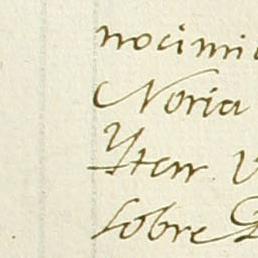 nocimi
Noria
Yten
sobre